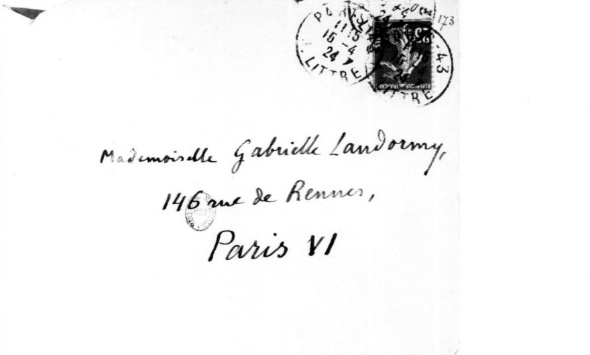 PARIS-43
11 15
15-4
24
LITTRE
173
Mademoiselle Gabrielle Landormy,
146 rue de Rennes,
Paris VI